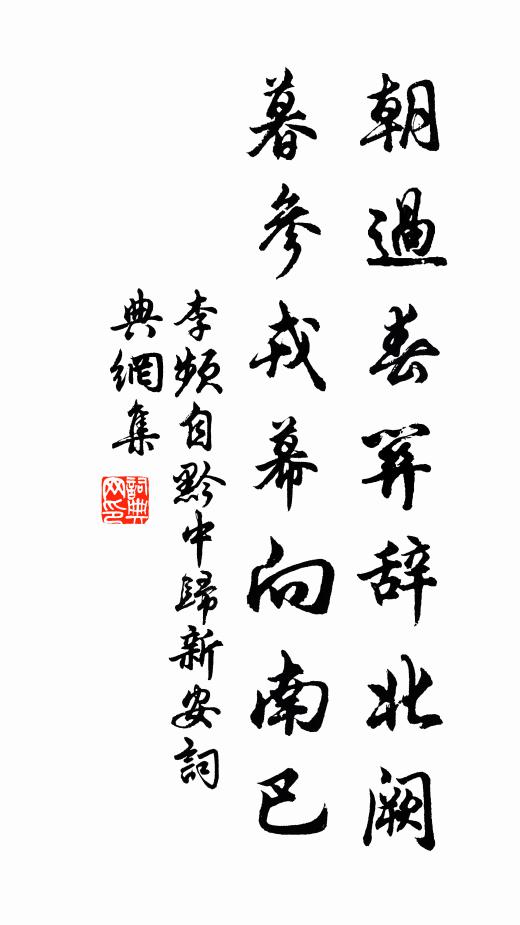 朝過春關辭北闕
暮參戎幕向南巴
李頻自黔中歸新安詞
典網集
詞典
网印